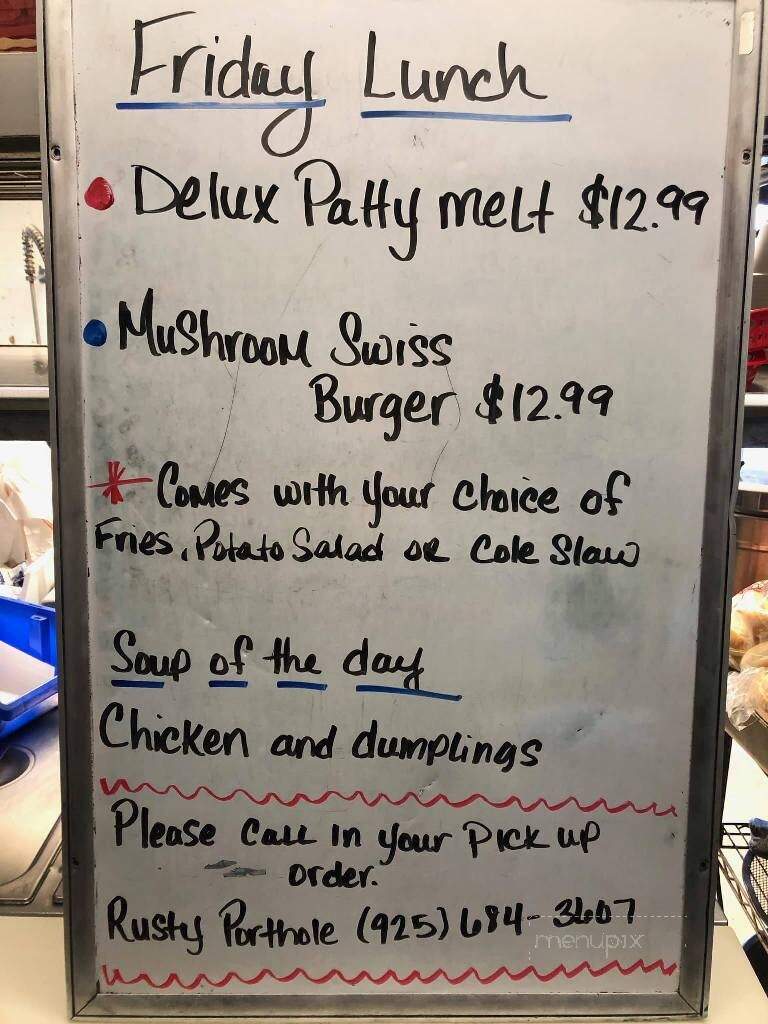 Friday Lunch
Delux Patty melt $12.99
Mushroom Swiss
Burger $12.99
* Comes with your choice of
Fries, Potato Salad or Cole Slaw
Soup of the day
Chicken and dumplings
Please Call in your Pick up
order.
Rusty Porthole (925) 684-3607
menupix